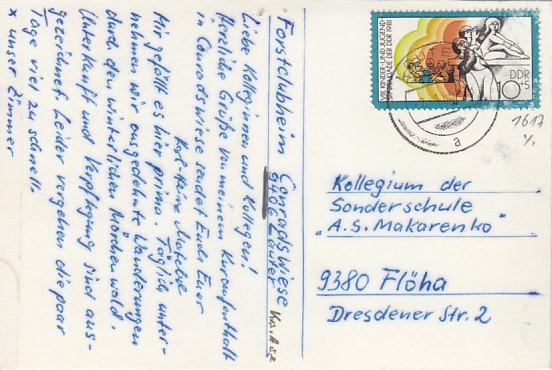 Forstclubheim Conradswiese
9406 Lauter
Liebe Kolleginnen und Kollegen!
Herzliche Grüße von meinem Kuraufenthalt
in Conradswiese sendet Euch Euer
Karl-Heinz
Mir gefällt es hier prima. Täglich unter-
nehmen wir ausgedehnte Wanderungen
durch den winterlichen Märchenwald.
Unterkunft und Verpflegung sind aus-
gezeichnet. Leider vergehen die paar
Tage viel zu schnell.
x unser Zimmer
VIII. KINDER- UND JUGEND-
SPARTAKIADE DER DDR 1981
DDR
10+5
a
1617
Kollegium der
Sonderschule
"A.S. Makarenko"
9380 Flöha
Dresdener Str. 2